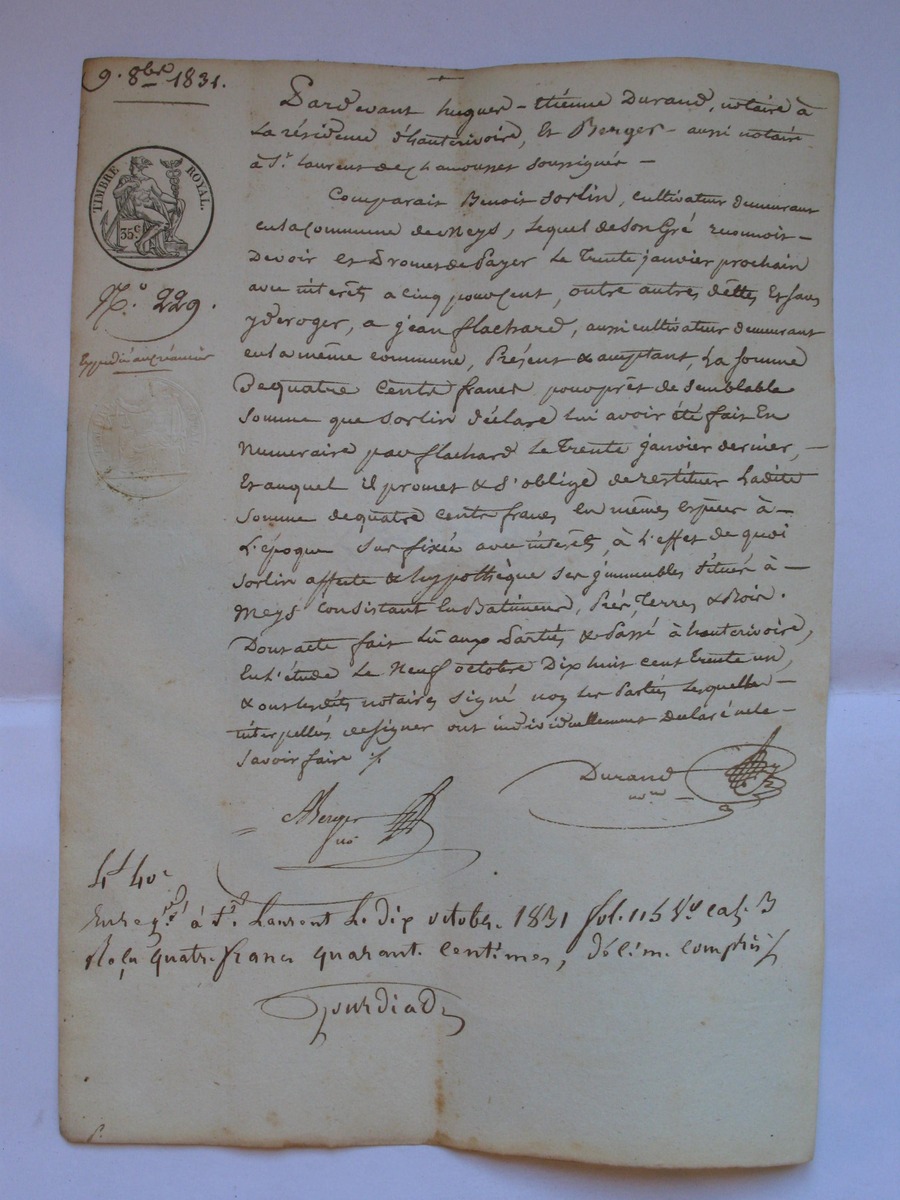 9. 8bre 1831.
TIMBRE ROYAL.
35.c
N.o 229.
Expédié au créancier
Pardevant hugues-étienne Durand, notaire à
La résidence d'hauterivoire, et Berger aussi notaire
à St. Laurent de chamousset soussignés -
Comparait Benoit Sorlin, cultivateur demeurant
en la commune de Meys, Lequel de son Gré reconnoit -
Devoir et Promet de Payer Le Trente janvier prochain
avec intérêts a cinq pour cent, outre autres dettes et sans
y déroger, a jean flachard, aussi cultivateur demeurant
en la même commune, Présent & acceptant, La somme
De quatre Cents francs pour prêt de semblable
somme que sorlin déclare lui avoir été fait En
Numeraire par flachard Le Trente janvier dernier, -
Et auquel il promet & s'oblige de restituer Ladite
somme de quatre cents francs en mêmes Espèces à -
L'époque sus fixée avec intérêts, à L'effet de quoi
Sorlin affecte & hyppothèque ses immeubles situés à -
Meys Consistant En Batiments, Prés, Terres & Bois.
Dont acte fait Lu aux Parties & Passé à hauterivoire,
En L'étude Le Neuf octobre Dix huit cent Trente un,
& ont lesdits notaires signé non les Parties Lesquelles -
interpellés de signer ont individuellement declaré ne le
savoir faire ./.
Durand
nre
ABerger
no
4f 40c
Enregré à St. Laurent Le dix octobre 1831 fol. 115 Vo cas. 3
Reçu quatre francs quarante centimes, décime compris